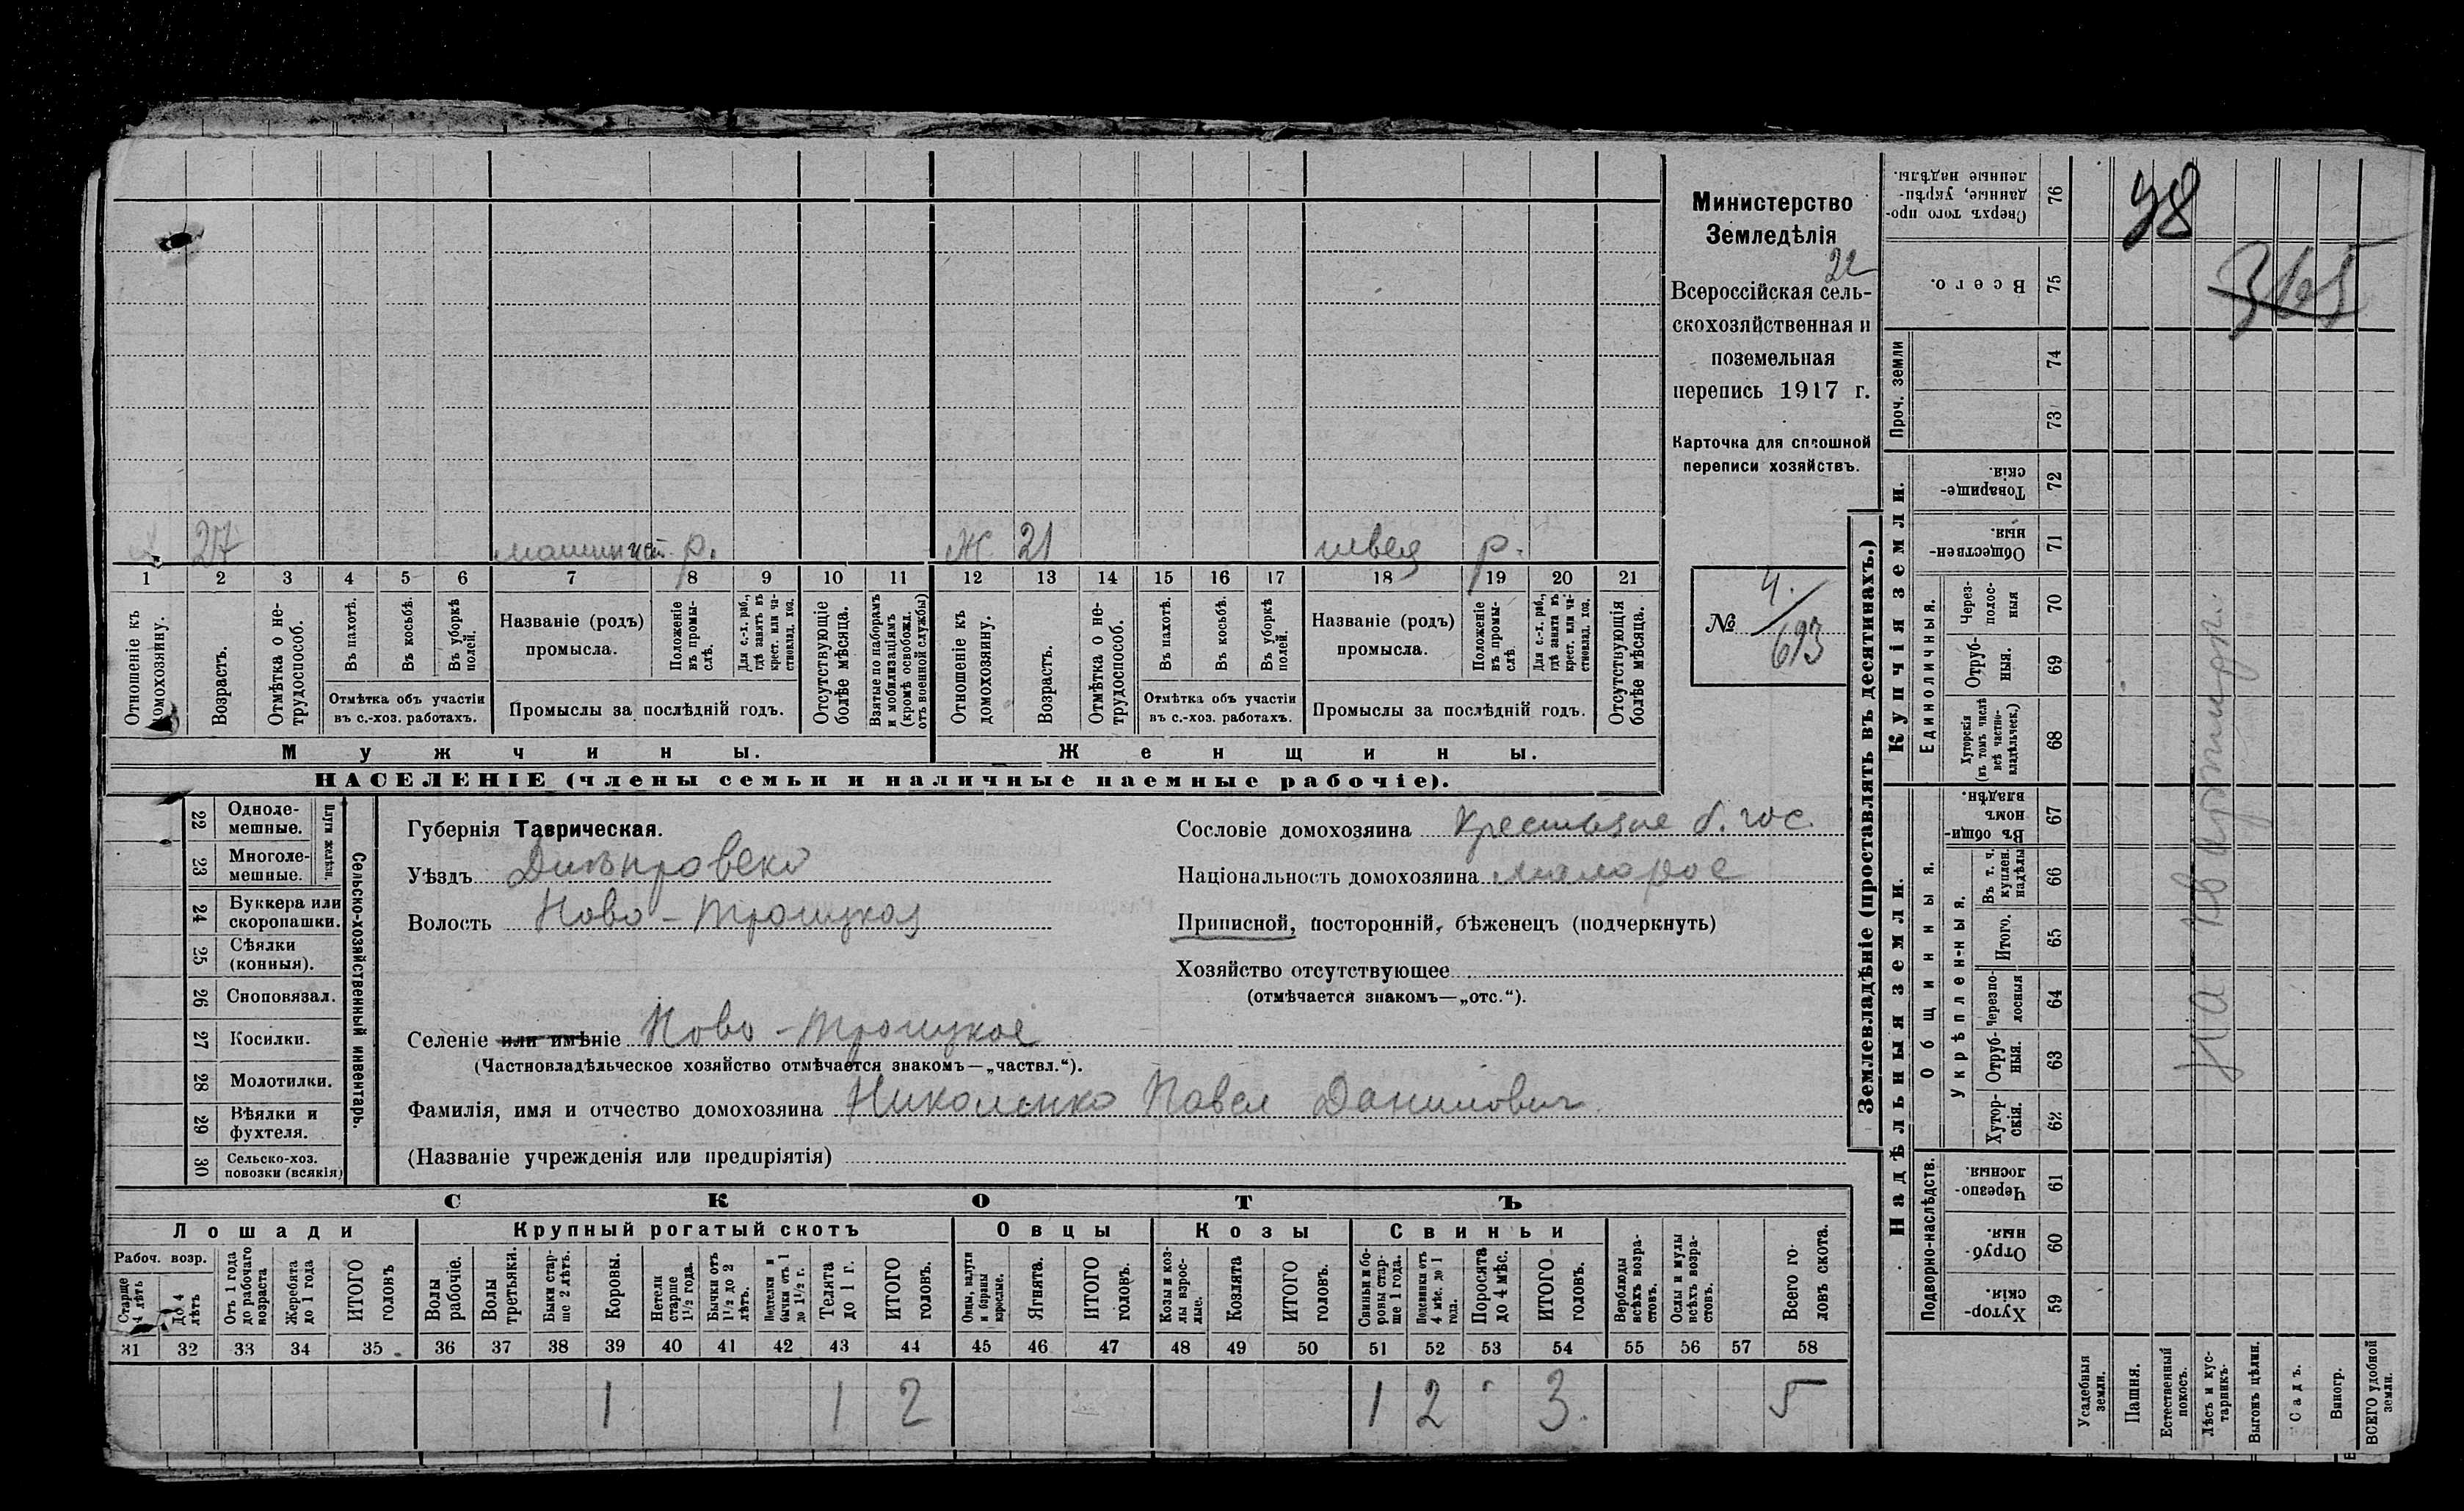 Министерство
Земледѣлія
22
Всероссійская сель-
скохозяйственная и
поземельная
перепись 1917 г.
Карточка для сплошной
переписи хозяйствъ.
№ 4./693
27 машинист р. Ж 21 швея р.
1 2 3 4 5 6 7 8 9 10 11 12 13 14 15 16 17 18 19 20 21
Отношеніе къ домохозяину.
Возрастъ.
Отмѣтка о не-трудоспособ.
Въ пахотѣ.
Въ косьбѣ.
Въ уборкѣ полей.
Отмѣтка объ участіи
въ с.-хоз. работахъ.
Названіе (родъ)
промысла.
Положеніе въ промы-слѣ.
Для с.-х. раб., гдѣ занятъ въ крест. или ча-стновлад. хоз.
Промыслы за послѣдній годъ.
Отсутствующіе болѣе мѣсяца.
Взятые по наборамъ и мобилизаціямъ (кромѣ освобожд. отъ военной службы)
Отношеніе къ домохозяину.
Возрастъ.
Отмѣтка о не-трудоспособ.
Въ пахотѣ.
Въ косьбѣ.
Въ уборкѣ полей.
Отмѣтка объ участіи
въ с.-хоз. работахъ.
Названіе (родъ)
промысла.
Положеніе въ промы-слѣ.
Для с.-х. раб., гдѣ занята въ крест. или ча-стновлад. хоз.
Промыслы за послѣдній годъ.
Отсутствующія болѣе мѣсяца.
Мужчины. Женщины.
НАСЕЛЕНІЕ (члены семьи и наличные наемные рабочіе).
22 Одноле-мешные.
23 Многоле-мешные.
Плуги желѣзн.
24 Буккера или скоропашки.
25 Сѣялки (конныя).
26 Сноповязал.
27 Косилки.
28 Молотилки.
29 Вѣялки и фухтеля.
30 Сельско-хоз. повозки (всякія)
Сельско-хозяйственный инвентарь.
Губернія Таврическая.
Уѣздъ Днѣпровско
Волость Ново-Троицкая
Селеніе или имѣніе Ново-Троицкое
(Частновладѣльческое хозяйство отмѣчается знакомъ—„частвл.“).
Фамилія, имя и отчество домохозяина Николенко Павел Данилович
(Названіе учрежденія или предпріятія)
Сословіе домохозяина Крестьяне б. гос.
Національность домохозяина малорос
Приписной, посторонній, бѣженецъ (подчеркнуть)
Хозяйство отсутствующее
(отмѣчается знакомъ—„отс.“).
СКОТЪ
Лошади Крупный рогатый скотъ Овцы Козы Свиньи
Рабоч. возр.
Старше 4 лѣтъ
До 4 лѣтъ
Отъ 1 года до рабочаго возраста
Жеребята до 1 года
ИТОГО головъ
Волы рабочіе.
Волы третьяки.
Быки стар-ше 2 лѣтъ.
Коровы.
Нетели старше 1½ года.
Бычки отъ 1½ до 2 лѣтъ.
Подтелки и бычки отъ 1 до 1½ г.
Телята до 1 г.
ИТОГО головъ.
Овцы, валухи и бараны взрослые.
Ягнята.
ИТОГО головъ.
Козы и коз-лы взрос-лые.
Козлята
ИТОГО головъ.
Свиньи и бо-ровы стар-ше 1 года.
Подсвинки отъ 4 мѣс. до 1 года.
Поросята до 4 мѣс.
ИТОГО головъ.
Верблюды всѣхъ возра-стовъ.
Ослы и мулы всѣхъ возра-стовъ.
Всего го-ловъ скота.
31 32 33 34 35 36 37 38 39 40 41 42 43 44 45 46 47 48 49 50 51 52 53 54 55 56 57 58
1 1 2 1 2 3 5
Землевладѣніе (проставлять въ десятинахъ.)
Купчія земли.
Надѣльныя земли.
Проч. земли
Единоличныя.
Общинныя.
Укрѣпленныя.
Подворно-наслѣдств.
76 Сверхъ того про-данные, укрѣп-ленные надѣлы.
75 Всего.
74
73
72 Товарище-скія.
71 Обществен-ныя.
70 Через-полос-ныя
69 Отруб-ныя.
68 Хуторскія (въ томъ числѣ всѣ частно-владѣльческ.)
67 Въ общин-номъ владѣн.
66 Въ т. ч. куплен. надѣлы
65 Итого.
64 Черезпо-лосныя
63 Отруб-ныя.
62 Хутор-скія.
61 Черезпо-лосныя.
60 Отруб-ныя.
59 Хутор-скія.
Усадебныя земли.
Пашня.
Естественный покосъ.
Лѣсъ и кус-тарникъ.
Выгонъ цѣлин.
Садъ.
Виногр.
ВСЕГО удобной земли.
98
На кв